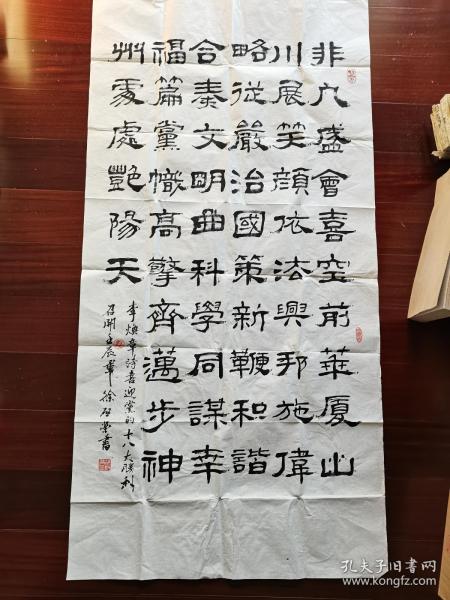 非凡盛會喜空前華厦山
川展笑顔依法興邦施偉
略從嚴治國策新鞭和諧
合奏文明曲科學同謀幸
福篇黨幟高擎齊邁步神
州處處艷陽天
李煥章詩喜迎黨的十八大勝利
召開壬辰徐書
孔夫子旧书网
www.kongfz.com